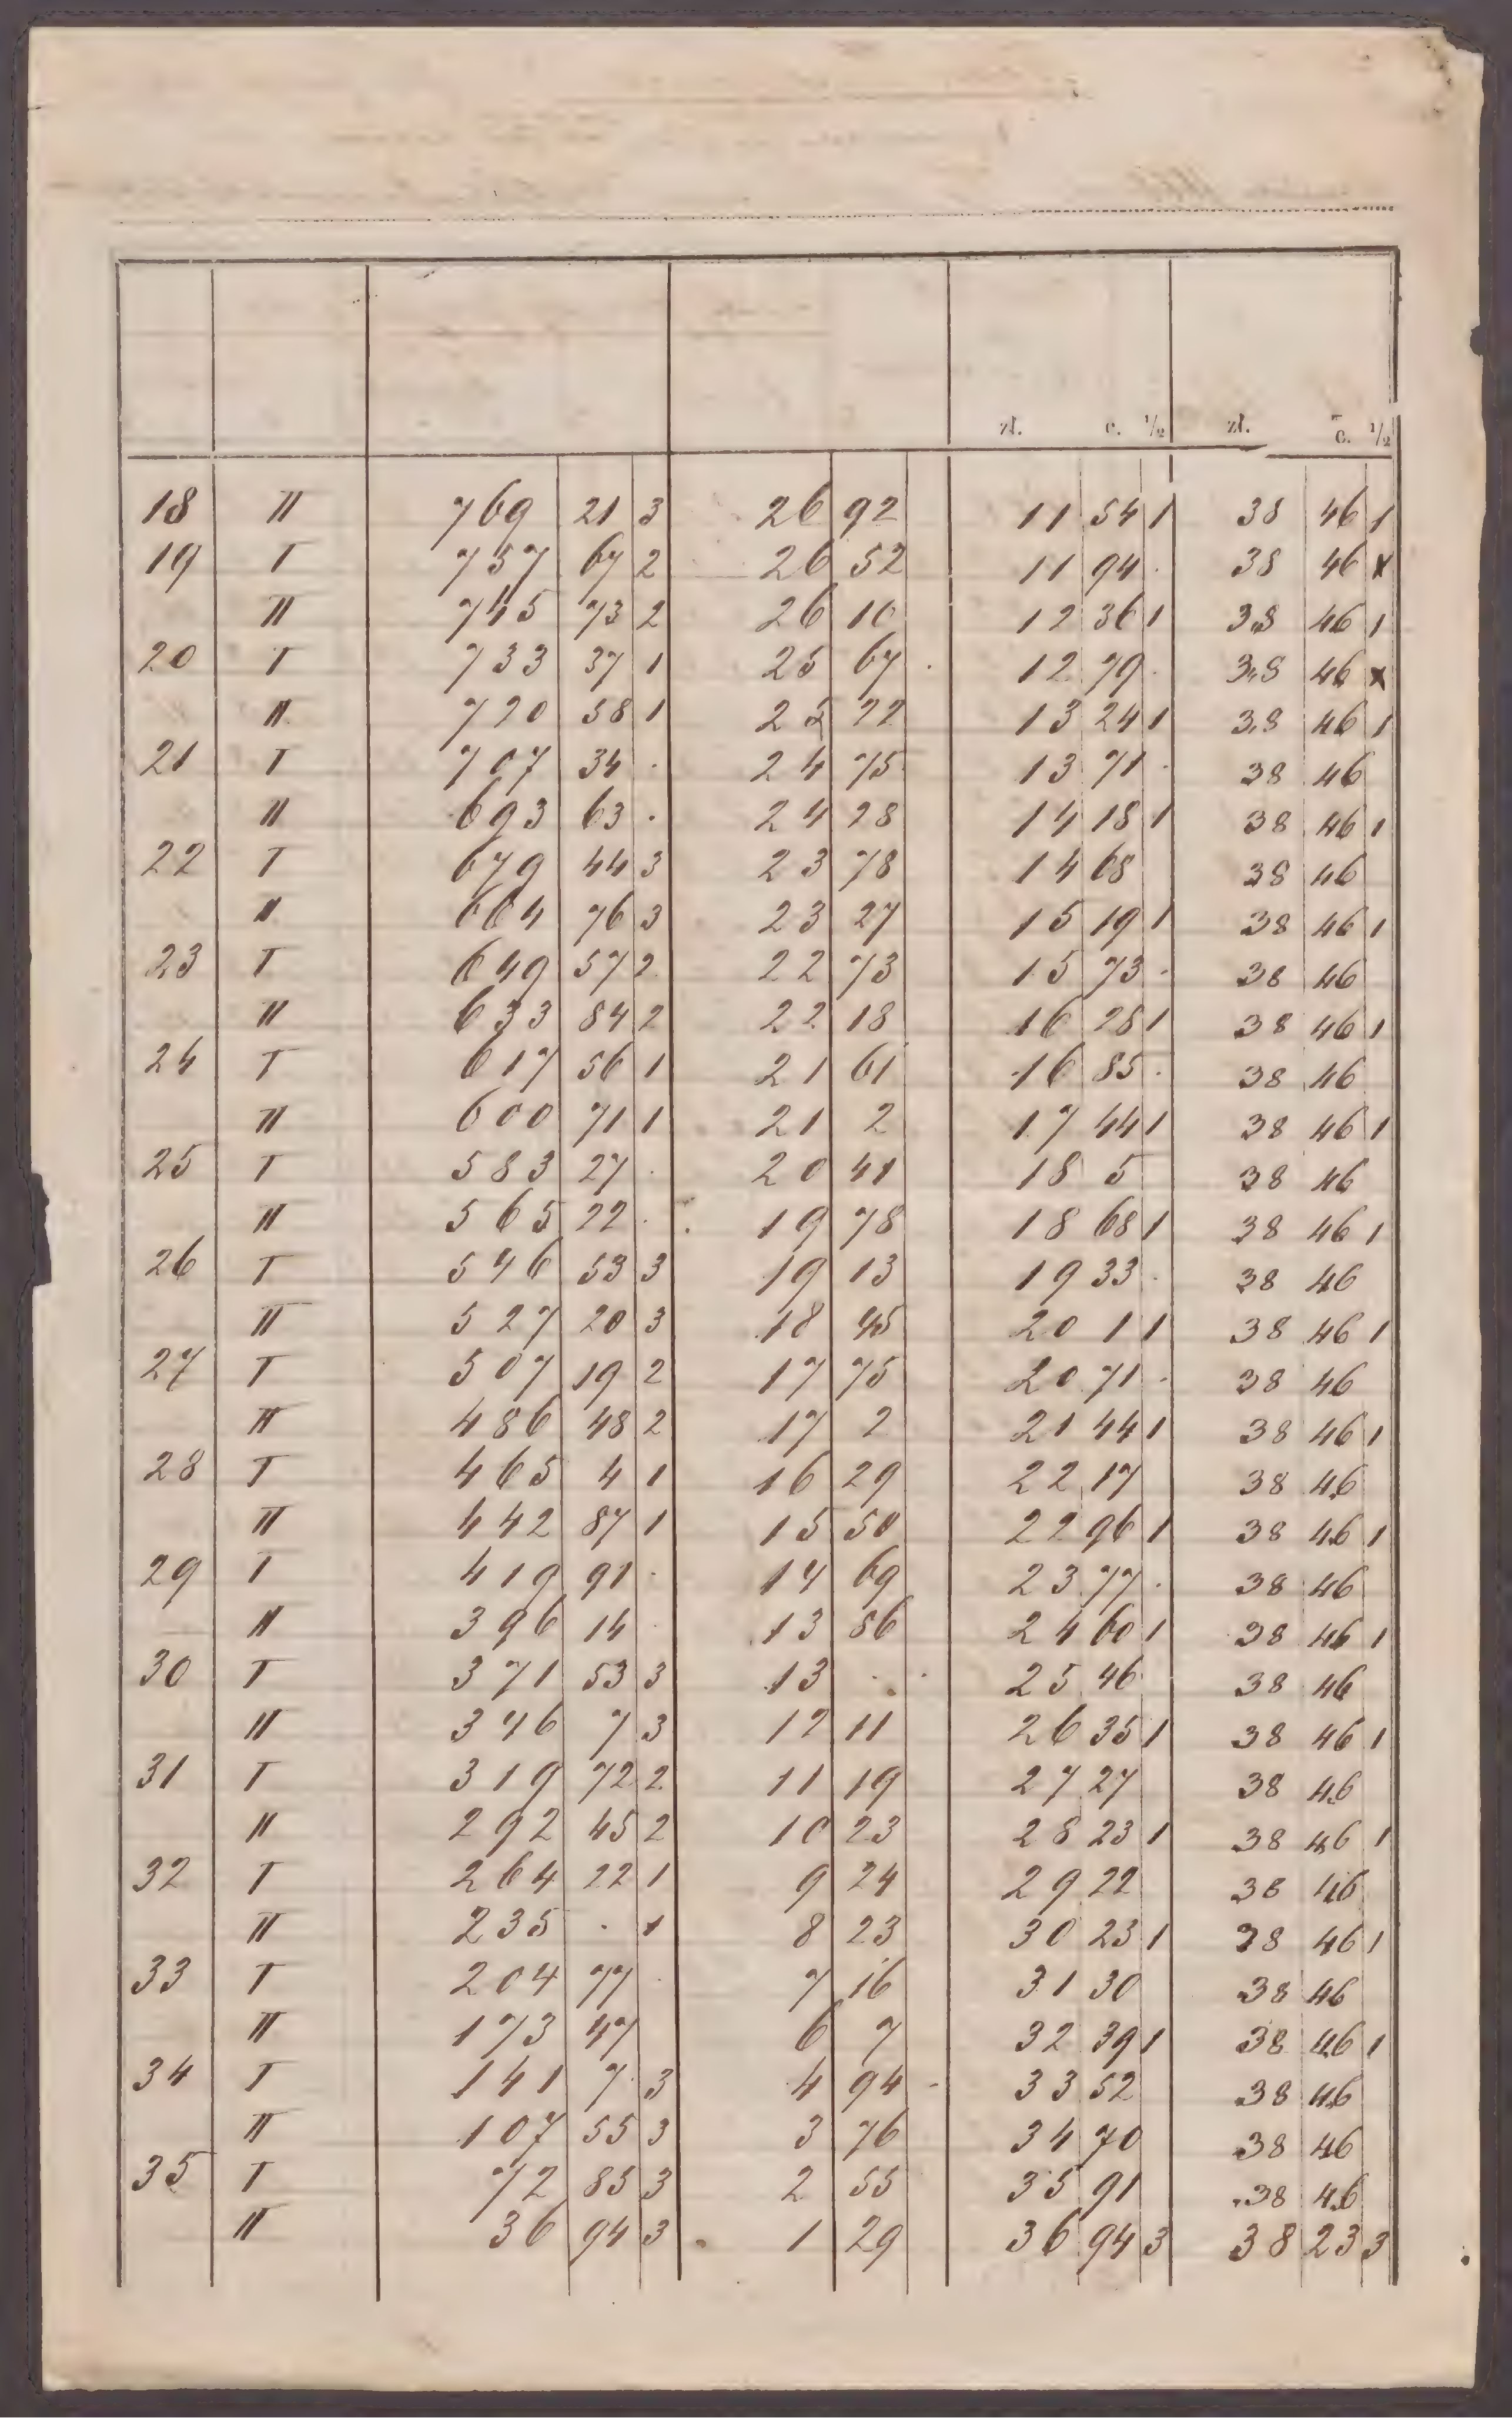 zł. c. 1/2 zł. c. 1/2
18 II 769 21 3 26 92 11 54 1 38 46 1
19 I 757 67 2 26 52 11 94 . 38 46 x
II 745 73 2 26 10 12 36 1 38 46 1
20 I 733 37 1 25 67 . 12 79 . 38 46 x
II 720 58 1 25 22 13 24 1 38 46 1
21 I 707 34 . 24 75 13 71 . 38 46
II 693 63 . 24 28 14 18 1 38 46 1
22 I 679 44 3 23 78 14 68 38 46
II 664 76 3 23 27 15 19 1 38 46 1
23 I 649 57 2 22 73 15 73 . 38 46
II 633 84 2 22 18 16 28 1 38 46 1
24 I 617 56 1 21 61 16 85 . 38 46
II 600 71 1 21 2 17 44 1 38 46 1
25 I 583 27 . 20 41 18 5 38 46
II 565 22 . 19 78 18 68 1 38 46 1
26 I 546 53 3 19 13 19 33 . 38 46
II 527 20 3 18 45 20 1 1 38 46 1
27 I 507 19 2 17 75 20 71 . 38 46
II 486 48 2 17 2 21 44 1 38 46 1
28 I 465 4 1 16 29 22 17 38 46
II 442 87 1 15 50 22 96 1 38 46 1
29 I 419 91 . 14 69 23 77 . 38 46
II 396 14 . 13 86 24 60 1 38 46 1
30 I 371 53 3 13 . . 25 46 38 46
II 346 7 3 12 11 26 35 1 38 46 1
31 I 319 72 2 11 19 27 27 38 46
II 292 45 2 10 23 28 23 1 38 46 1
32 I 264 22 1 9 24 29 22 38 46
II 235 . 1 8 23 30 23 1 38 46 1
33 I 204 77 . 7 16 31 30 38 46
II 173 47 6 7 32 39 1 38 46 1
34 I 141 7 3 4 94 33 52 38 46
II 107 55 3 3 76 34 70 38 46
35 I 72 85 3 2 55 35 91 38 46
II 36 94 3 1 29 36 94 3 38 23 3